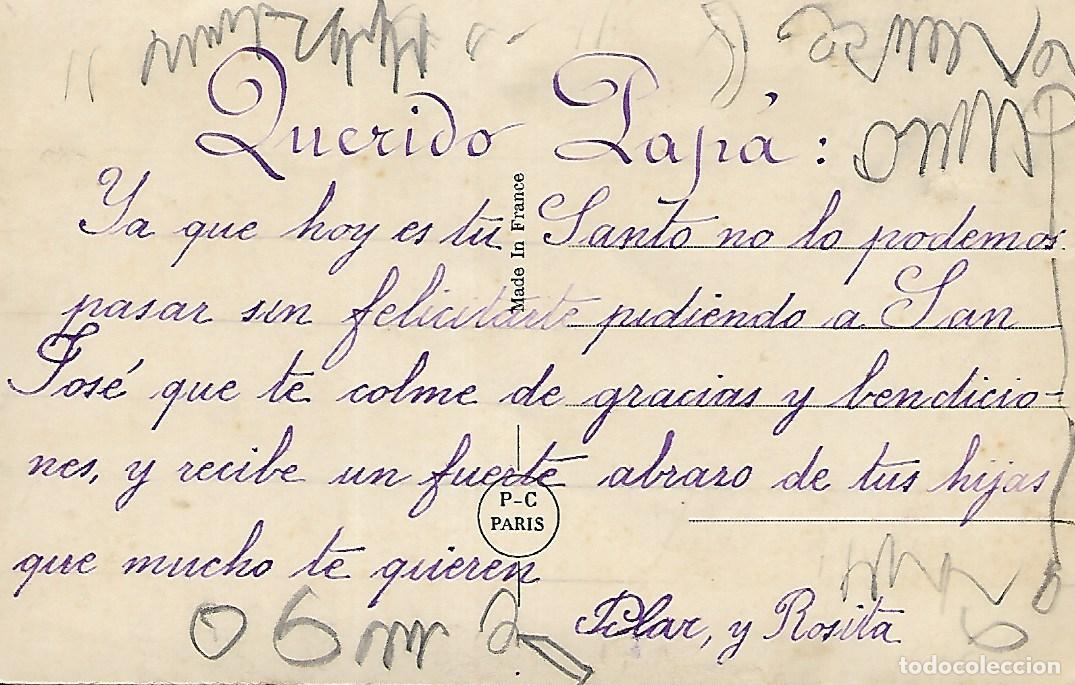 Querido Papá:
Ya que hoy es tu Santo no lo podemos
pasar sin felicitarte pidiendo a San
José que te colme de gracias y bendicio=
nes, y recibe un fuerte abrazo de tus hijas
que mucho te quieren
Pilar, y Rosita
Made In France
P-C
PARIS
todocoleccion